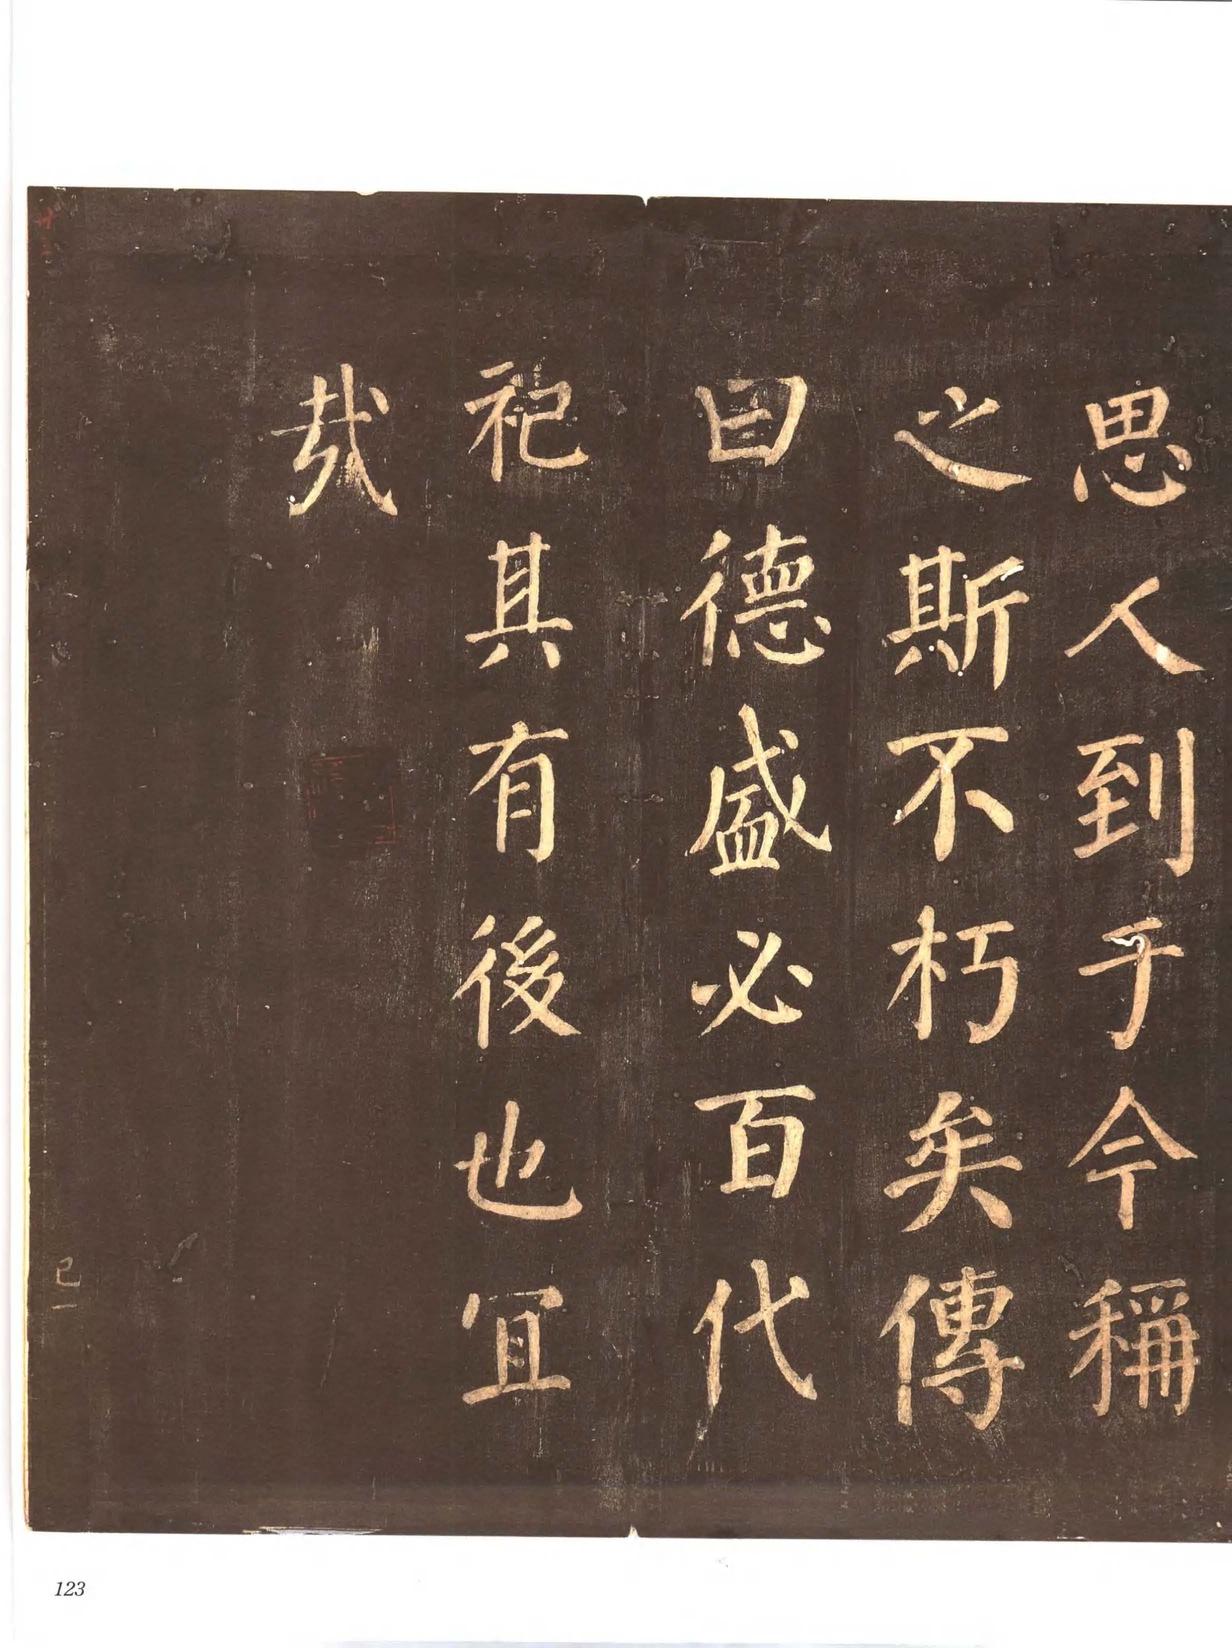 思人到于今稱
之斯不朽矣傳
曰德盛必百代
祀其有後也冝
哉
己一
123